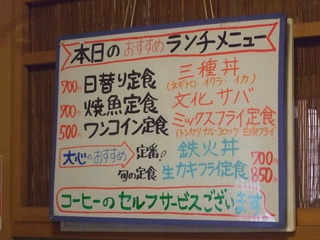 本日のおすすめランチメニュー
700円 日替り定食
900円 焼魚定食
500円 ワンコイン定食
三種丼
(ネギトロ・イクラ・イカ)
文化サバ
ミックスフライ定食
大心のおすすめ
定番!
旬の定食
鉄火丼 900円
生カキフライ定食 850円
コーヒーのセルフサービスございます